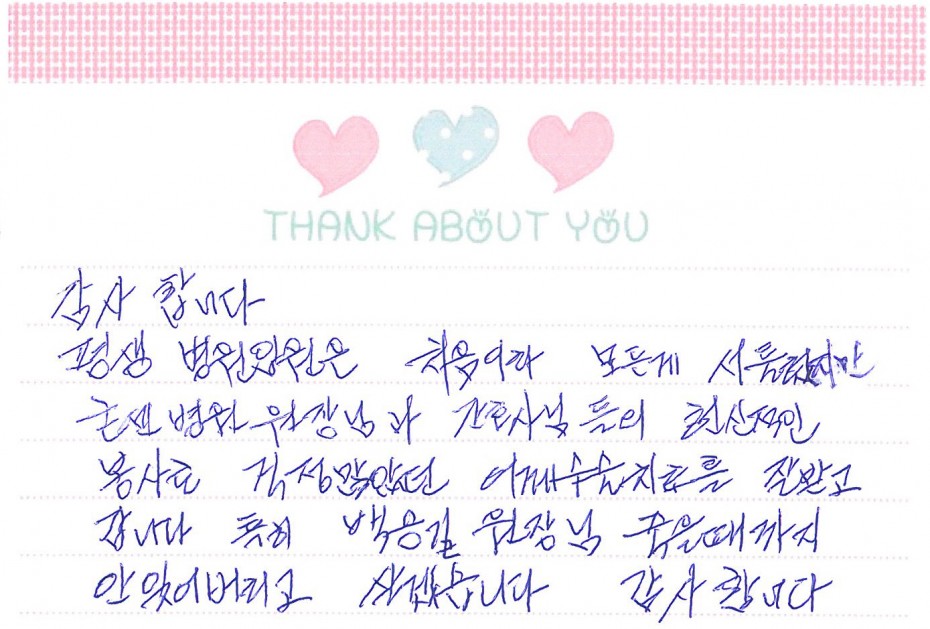 THANK ABOUT YOU
감사 합니다
평생 병원입원은 처음이라 모든게 서툴렀지만
굳센병원 원장님과 간호사님들의 헌신적인
봉사로 걱정많았던 어깨수술치료를 잘받고
갑니다 특히 백승길 원장님 죽을때까지
안잊어버리고 살겠습니다 감사합니다